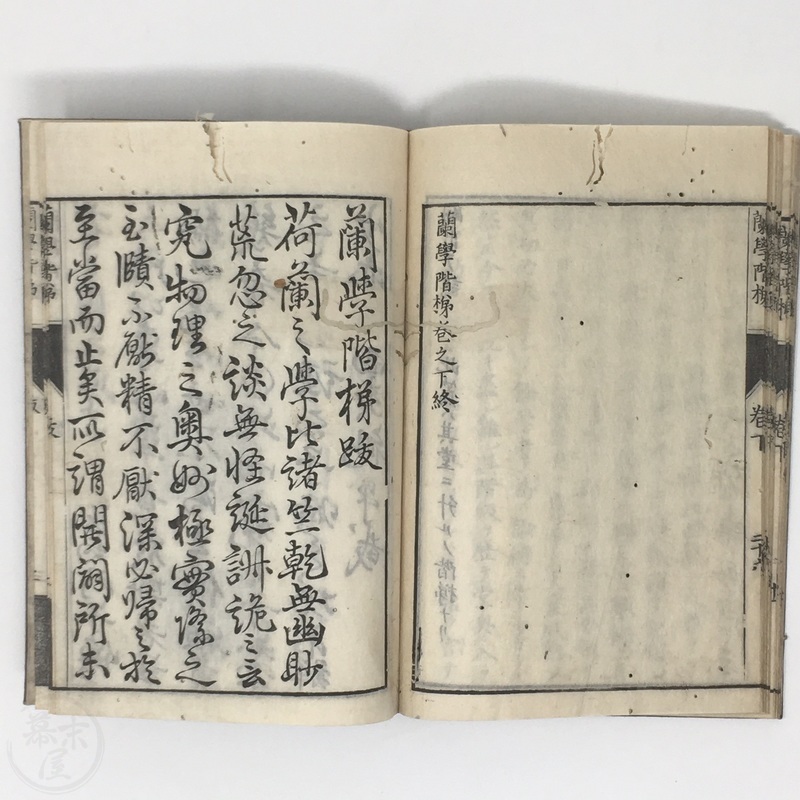 蘭學階梯巻之下終
蘭學階梯跋
荷蘭之學比諸竺乾無幽眇
荒忽之談無怪誕訓詭之言
究物理之奥妙極實際之
至賾不厭精不厭深必歸之於
至當而止矣所謂開闢所未
蘭學階梯
卷下
幕末屋